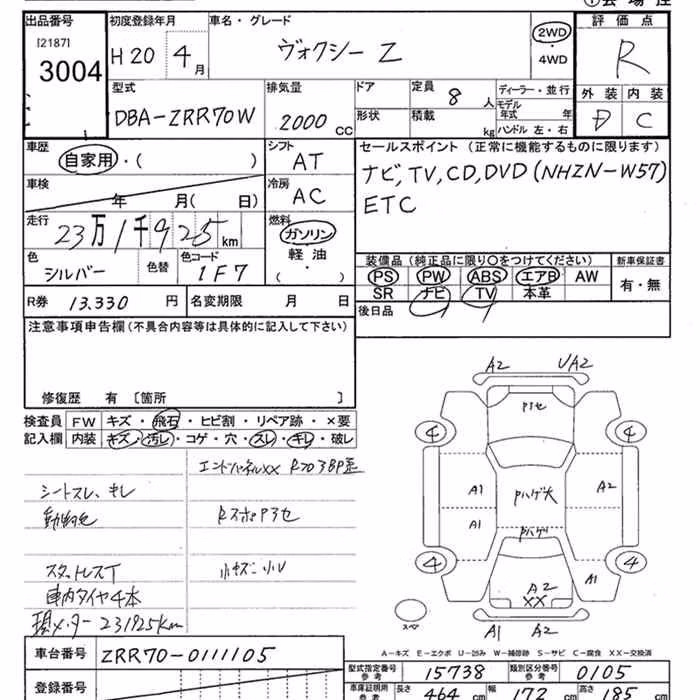 出品番号
[2187]
3004
初度登録年月
H20 4月
車名・グレード
ヴォクシー Z
2WD
・
4WD
評価点
R
外装 内装
D C
型式
DBA-ZRR70W
排気量
2000 CC
ドア
形状
定員
8人
積載
kg
ディーラー・並行
モデル年式 年
ハンドル 左・右
車歴
自家用・( )
シフト
AT
セールスポイント (正常に機能するものに限ります)
ナビ,TV,CD,DVD(NHZN-W57)
ETC
車検
年 月( 日)
冷房
AC
走行
23万1千925km
燃料
ガソリン
軽油
( ・ )
色
シルバー
色替
色コード
1F7
装備品 (純正品に限り○をつけてください)
PS PW ABS エアB AW
SR ナビ TV 本革
新車保証書
有・無
R券 13.330 円
名変期限 月 日
後日品
注意事項申告欄(不具合内容等は具体的に記入して下さい)
修復歴 有〔箇所 〕
検査員記入欄
FW キズ・飛石・ヒビ割・リペア跡・×要
内装 キズ・汚レ・コゲ・穴・スレ・キレ・破レ
シートスレ、キレ
スタットレスT
車内タイヤ4本
現メーター231925km
小キズ 小U
A2 UA2
4 4
A1 Pハゲ大 A2
A1 Pハゲ
4 4
A1
A2
XX
スペア
A1 A2
A-キズ E-エクボ U-凹み W-補修跡 S-サビ C-腐食 XX-交換済
車台番号 ZRR70-0111105
登録番号
型式指定番号 参考 15738
類別区分番号 参考 0105
車庫証明用 参考
長さ 464 cm
幅 172 cm
高さ 185 cm